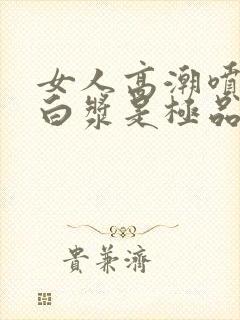 女人高潮噴
白漿是極品
貴兼濟